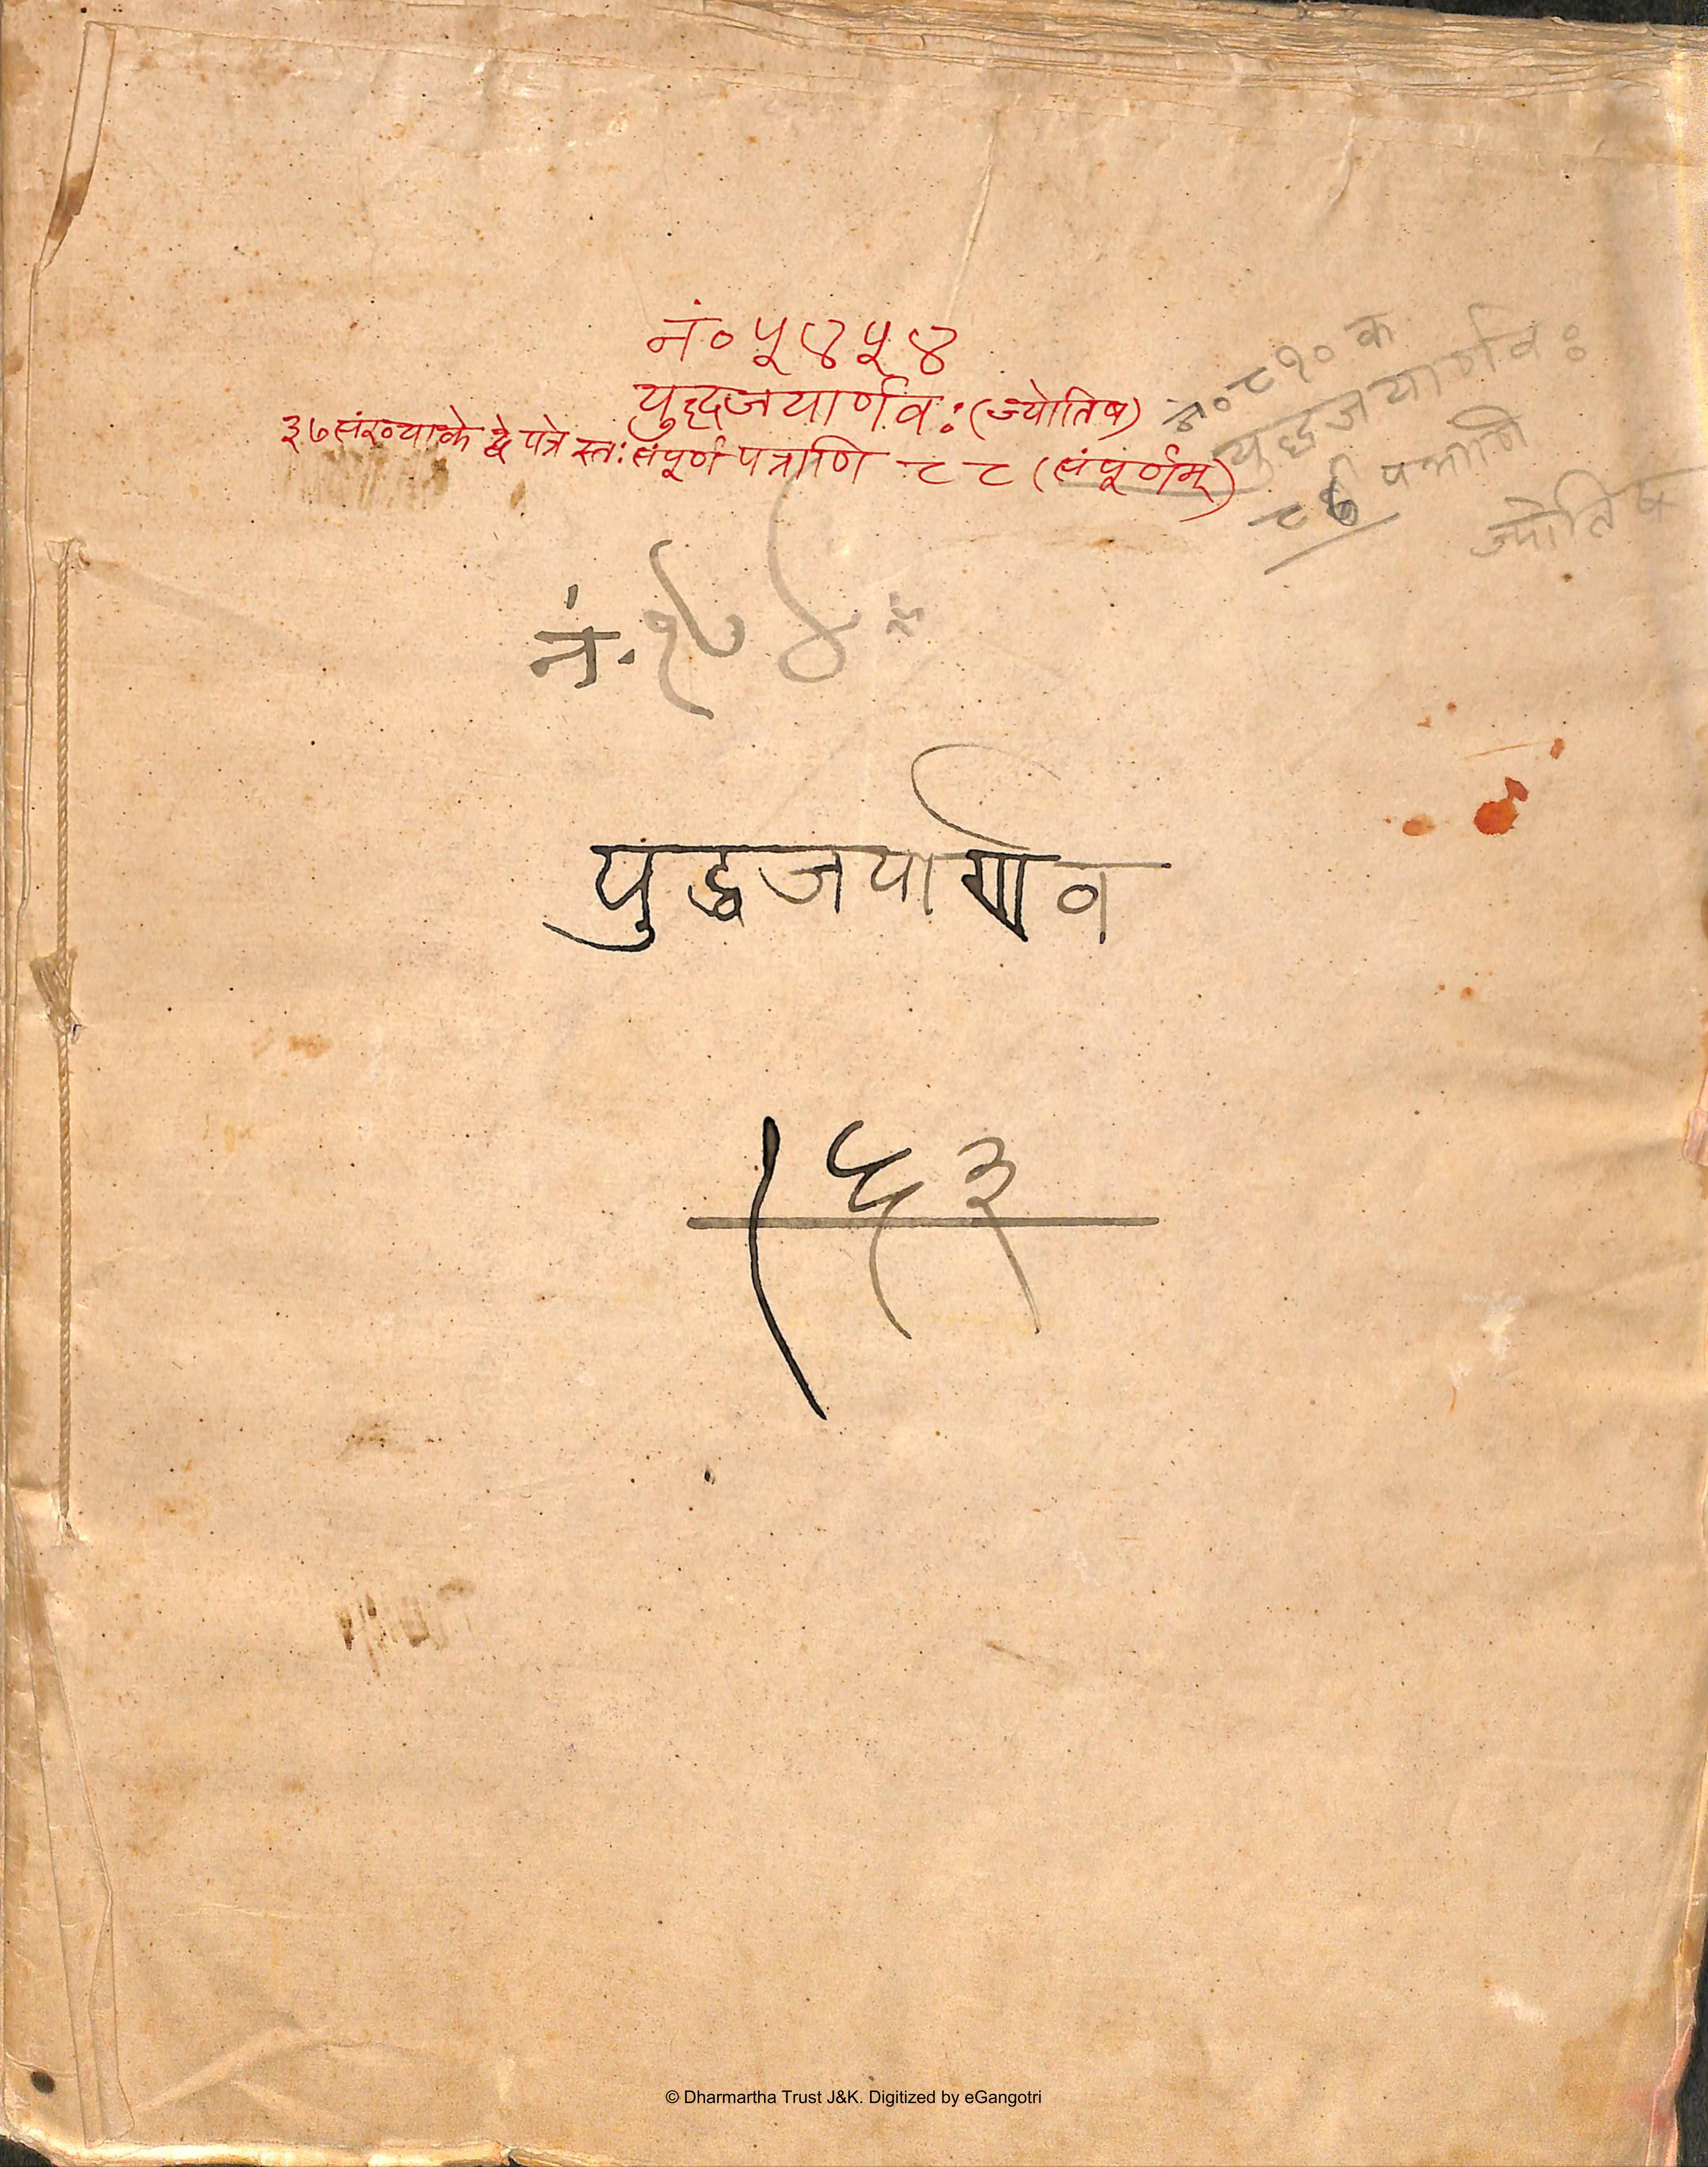 नं० ५४५४
युद्धजयार्णवः (ज्योतिष)
३७ संख्याके द्वे पत्रे स्तः संपूर्ण पत्राणि ८८ (संपूर्णम्)
नं० ८१० क
युद्धजयार्णवः
पत्राणि
ज्योतिष
नं.
युद्धजयार्णव
१५३
© Dharmartha Trust J&K. Digitized by eGangotri